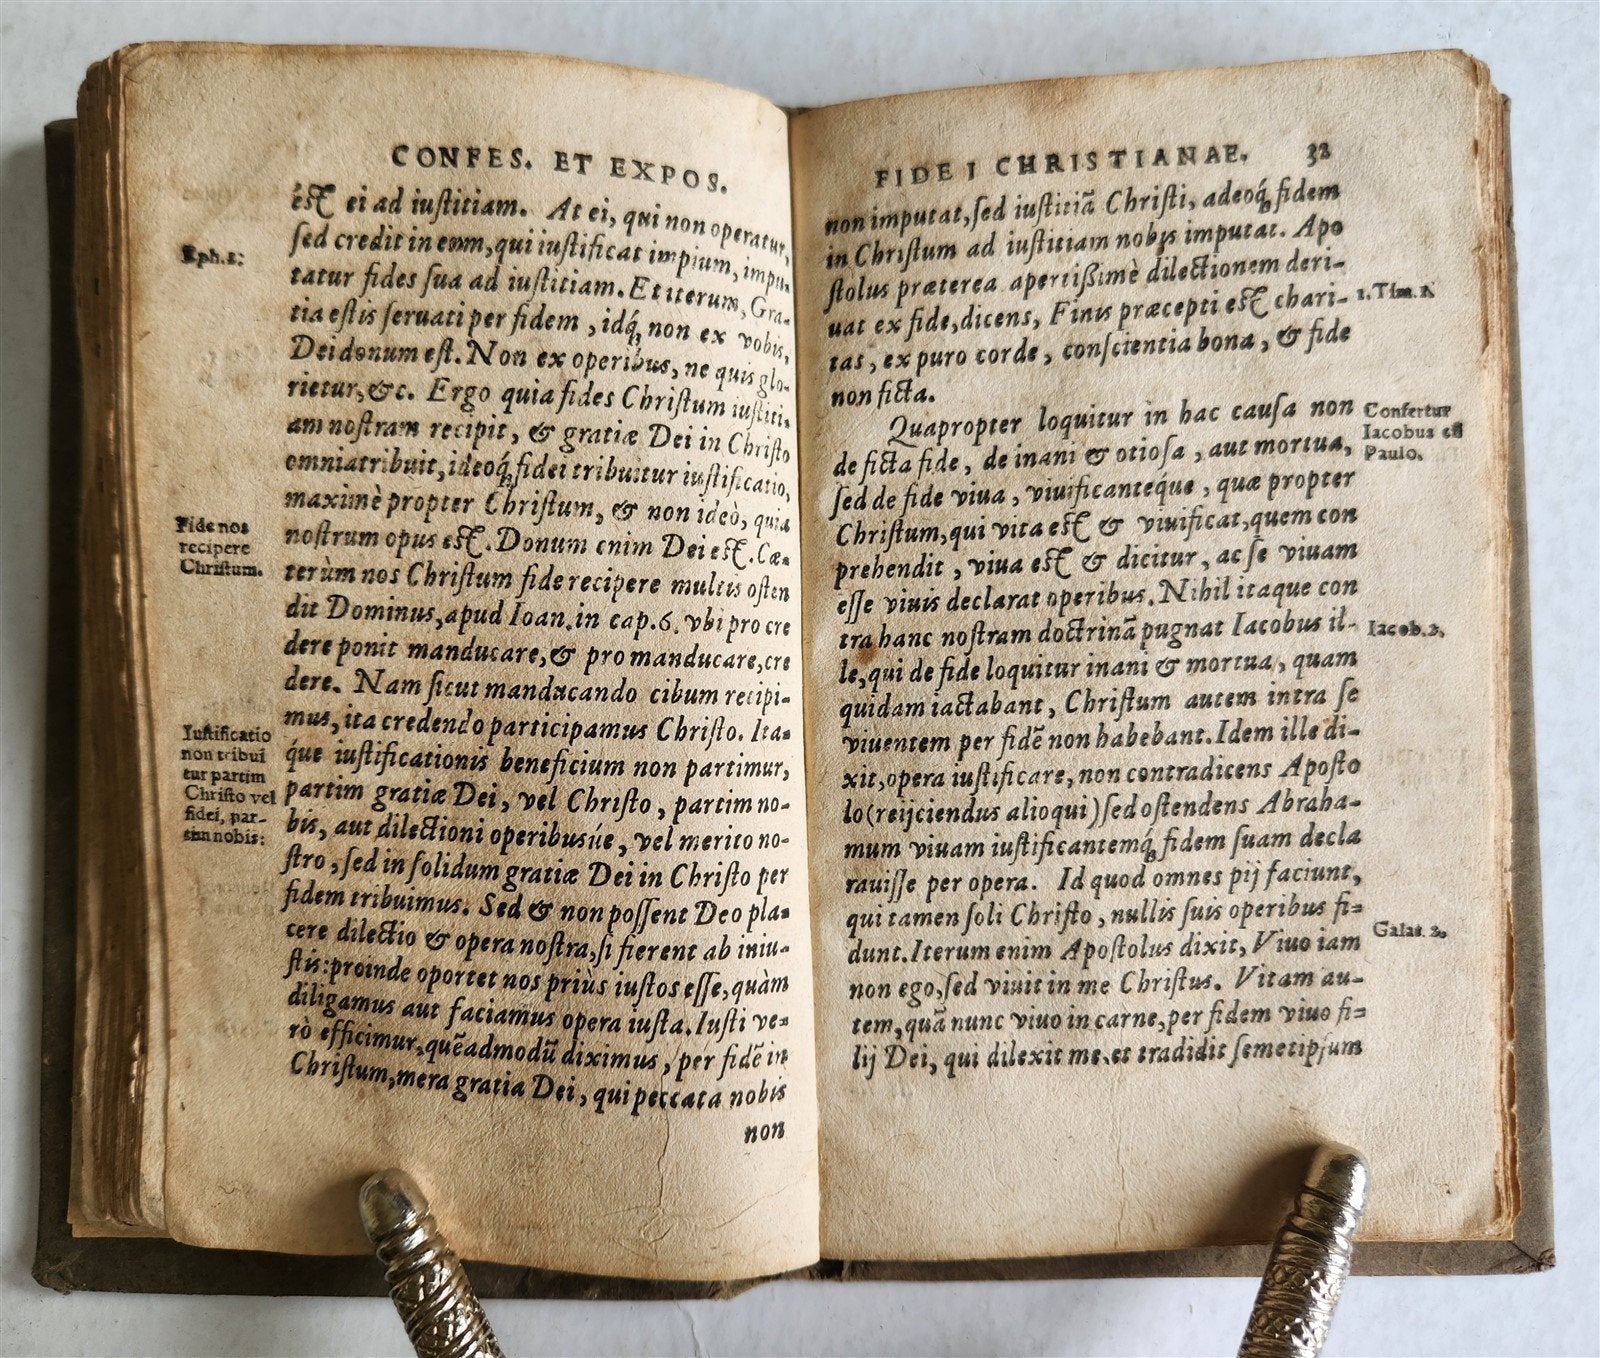 CONFES. ET EXPOS.
est ei ad iustitiam. At ei, qui non operatur,
sed credit in eum, qui iustificat impium, impu-
tatur fides sua ad iustitiam. Et iterum, Gra-
tia estis seruati per fidem, idq́; non ex vobis,
Dei donum est. Non ex operibus, ne quis glo-
rietur, &c. Ergo quia fides Christum iustiti-
am nostram recipit, & gratiæ Dei in Christo
omnia tribuit, ideoq́; fidei tribuitur iustificatio,
maximè propter Christum, & non ideò, quia
nostrum opus est. Donum enim Dei est. Cæ-
terùm nos Christum fide recipere multis osten
dit Dominus, apud Ioan. in cap. 6. vbi pro cre
dere ponit manducare, & pro manducare, cre
dere. Nam sicut manducando cibum recipi-
mus, ita credendo participamus Christo. Ita-
q́ue iustificationis beneficium non partimur,
partim gratiæ Dei, vel Christo, partim no-
bis, aut dilectioni operibusúe, vel merito no-
stro, sed in solidum gratiæ Dei in Christo per
fidem tribuimus. Sed & non possent Deo pla-
cere dilectio & opera nostra, si fierent ab iniu-
stis: proinde oportet nos priùs iustos esse, quàm
diligamus aut faciamus opera iusta. Iusti ve-
rò efficimur, quẽadmodũ diximus, per fidẽ in
Christum, mera gratia Dei, qui peccata nobis
non
Eph. 2:
Fide nos
recipere
Christum.
Iustificatio
non tribui
tur partim
Christo vel
fidei, par-
tim nobis:
FIDEI CHRISTIANAE. 32
non imputat, sed iustitiã Christi, adeoq́; fidem
in Christum ad iustitiam nobis imputat. Apo
stolus præterea apertißimè dilectionem deri-
uat ex fide, dicens, Finis præcepti est chari-
tas, ex puro corde, conscientia bona, & fide
non ficta.
Quapropter loquitur in hac causa non
de ficta fide, de inani & otiosa, aut mortua,
sed de fide viua, viuificanteq́ue, quæ propter
Christum, qui vita est & viuificat, quem con
prehendit, viua est & dicitur, ac se viuam
esse viuis declarat operibus. Nihil itaque con
tra hanc nostram doctrinã pugnat Iacobus il-
le, qui de fide loquitur inani & mortua, quam
quidam iactabant, Christum autem intra se
viuentem per fidẽ non habebant. Idem ille di-
xit, opera iustificare, non contradicens Aposto
lo (reijciendus alioqui) sed ostendens Abraha-
mum viuam iustificantemq́; fidem suam decla
rauisse per opera. Id quod omnes pij faciunt,
qui tamen soli Christo, nullis suis operibus fi-
dunt. Iterum enim Apostolus dixit, Viuo iam
non ego, sed viuit in me Christus. Vitam au-
tem, quã nunc viuo in carne, per fidem viuo fi-
lij Dei, qui dilexit me, et tradidit semetipsum
1. Tim. 1.
Confertur
Iacobus cũ
Paulo.
Iacob. 2.
Galat. 2.